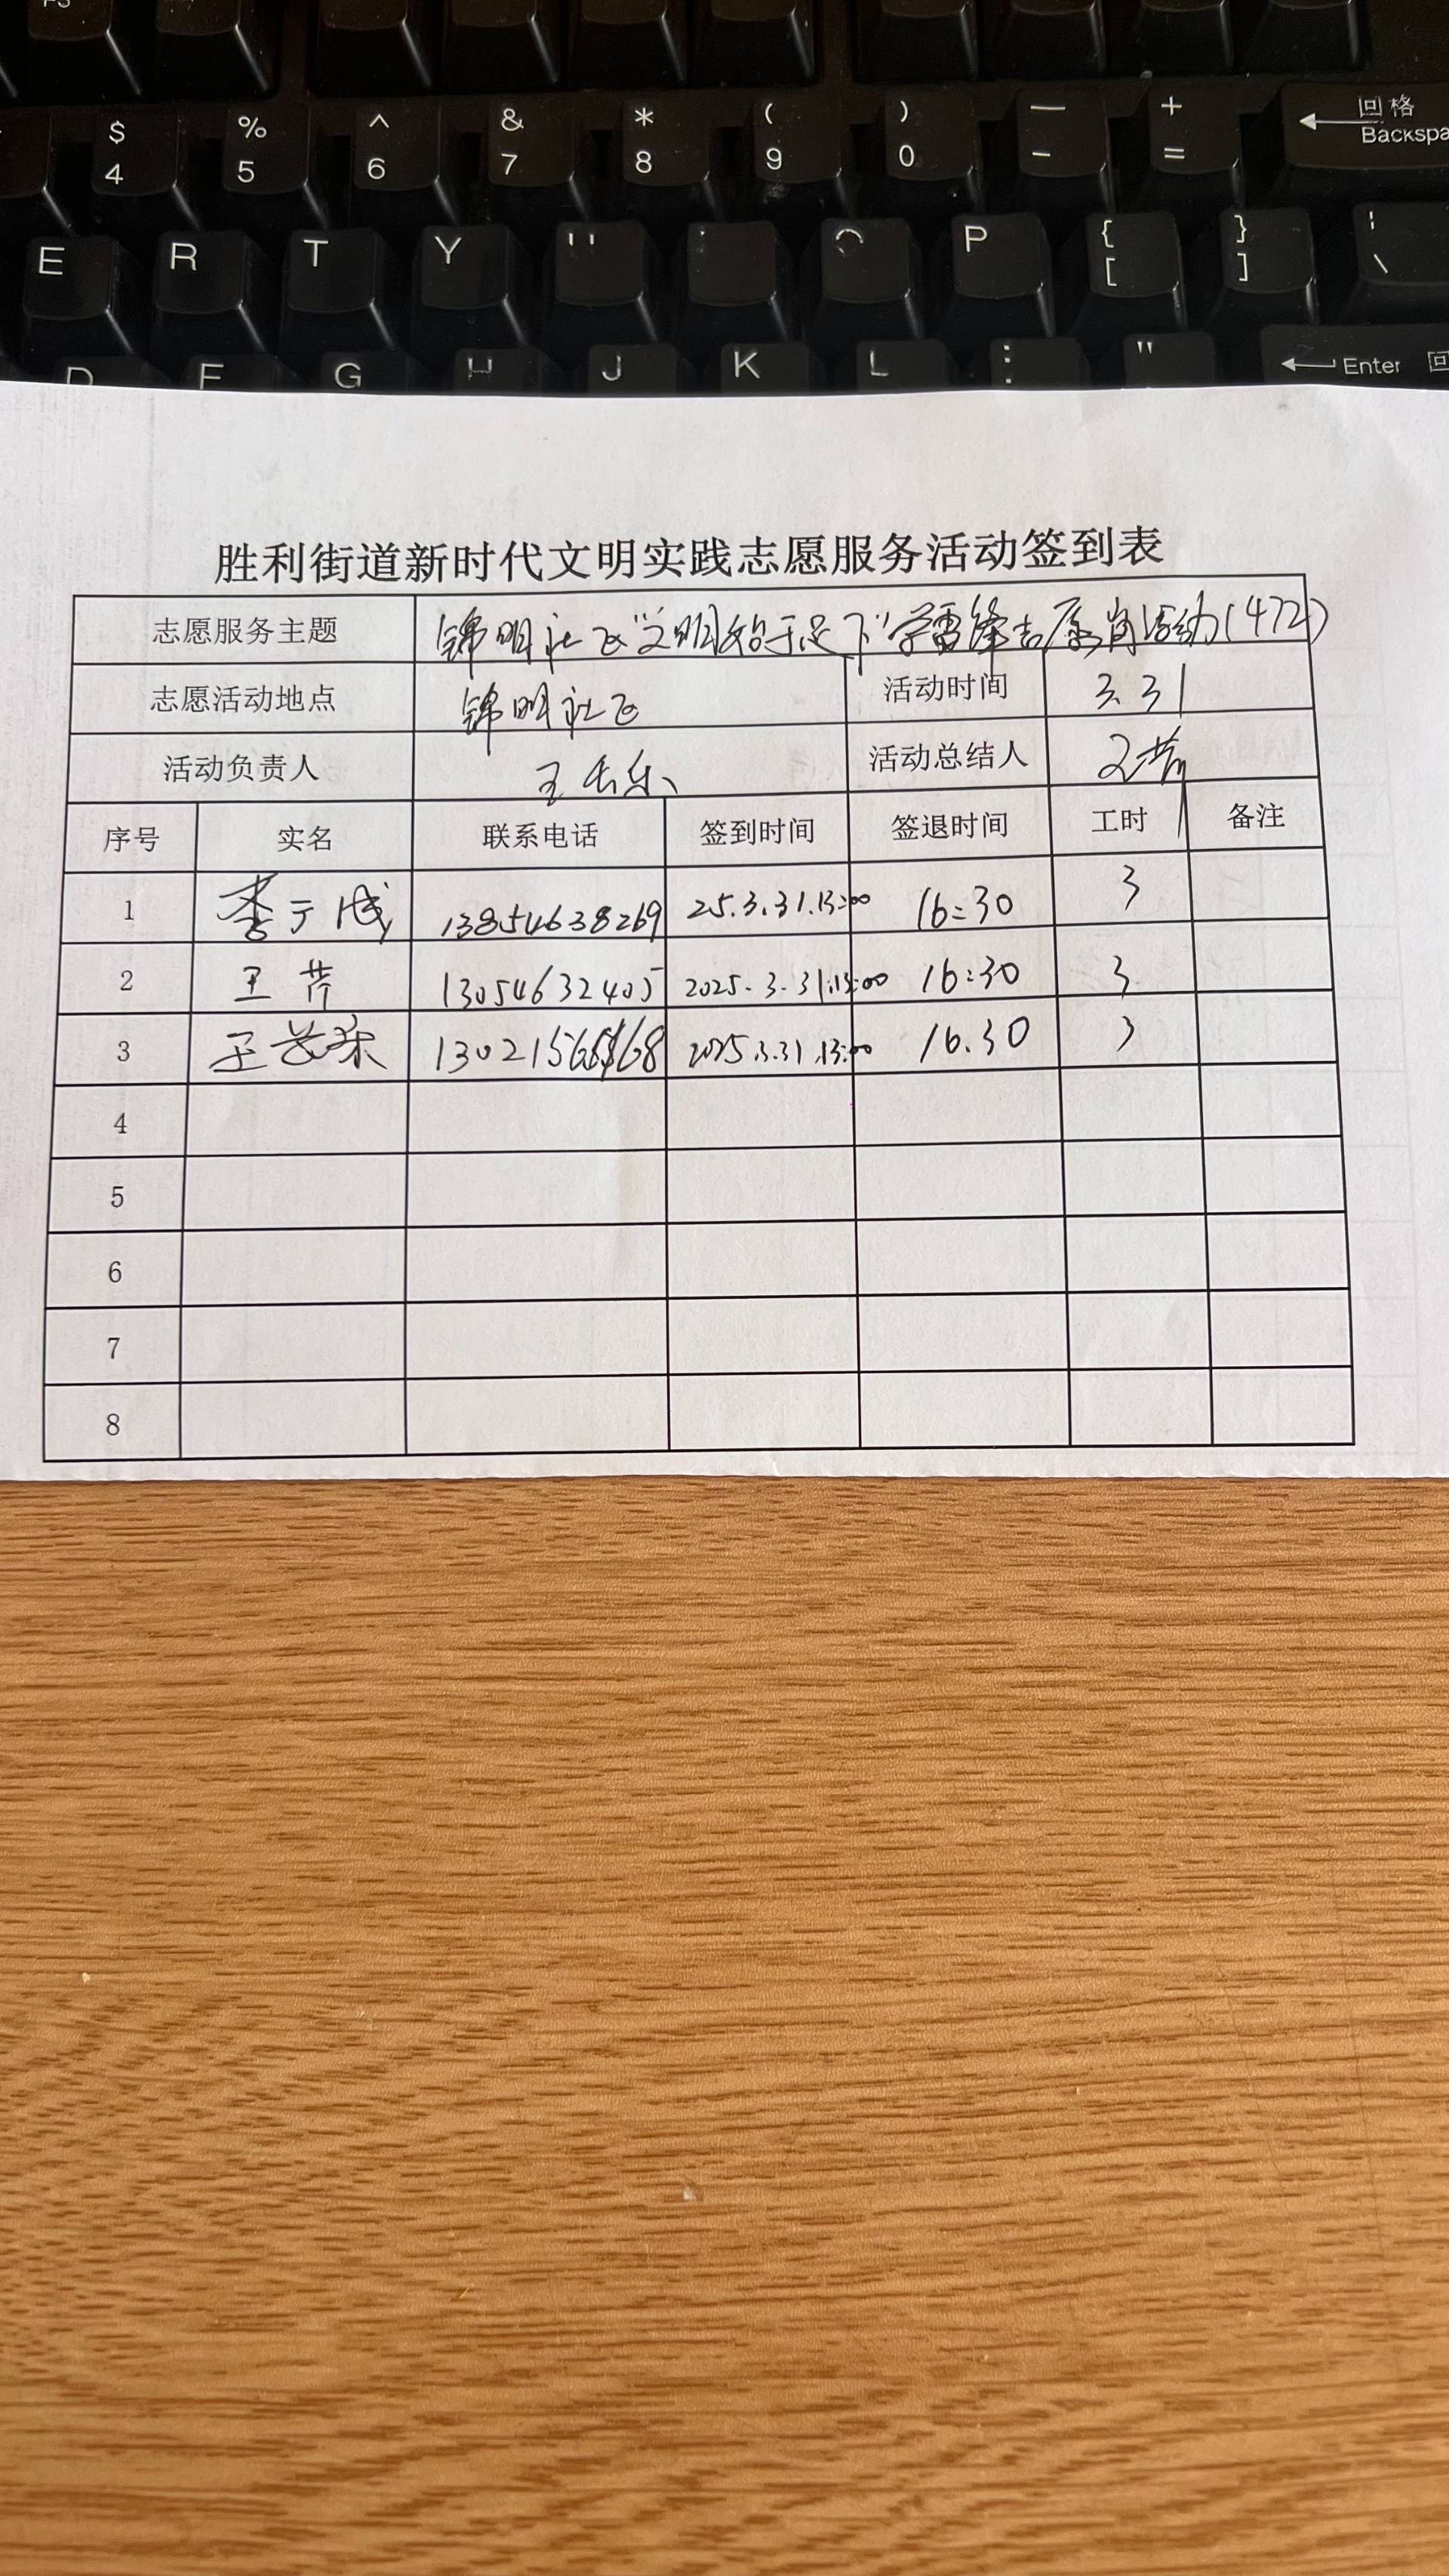 $ % ^ & * ( ) — + 回格
4 5 6 7 8 9 0 - = Backspa
E R T Y P { } 
[ ] \
D F G H J K L : " Enter
胜利街道新时代文明实践志愿服务活动签到表
志愿服务主题 锦明社区"文明始于足下"学雷锋志愿者活动(472)
志愿活动地点 锦明社区 活动时间 3.31
活动负责人 活动总结人
序号 实名 联系电话 签到时间 签退时间 工时 备注
1 13854638269 25.3.31.13:00 16:30 3
2 王芹 13054632405 2025.3.31.13:00 16:30 3
3 2025.3.31.13:00 16.30 3
4
5
6
7
8